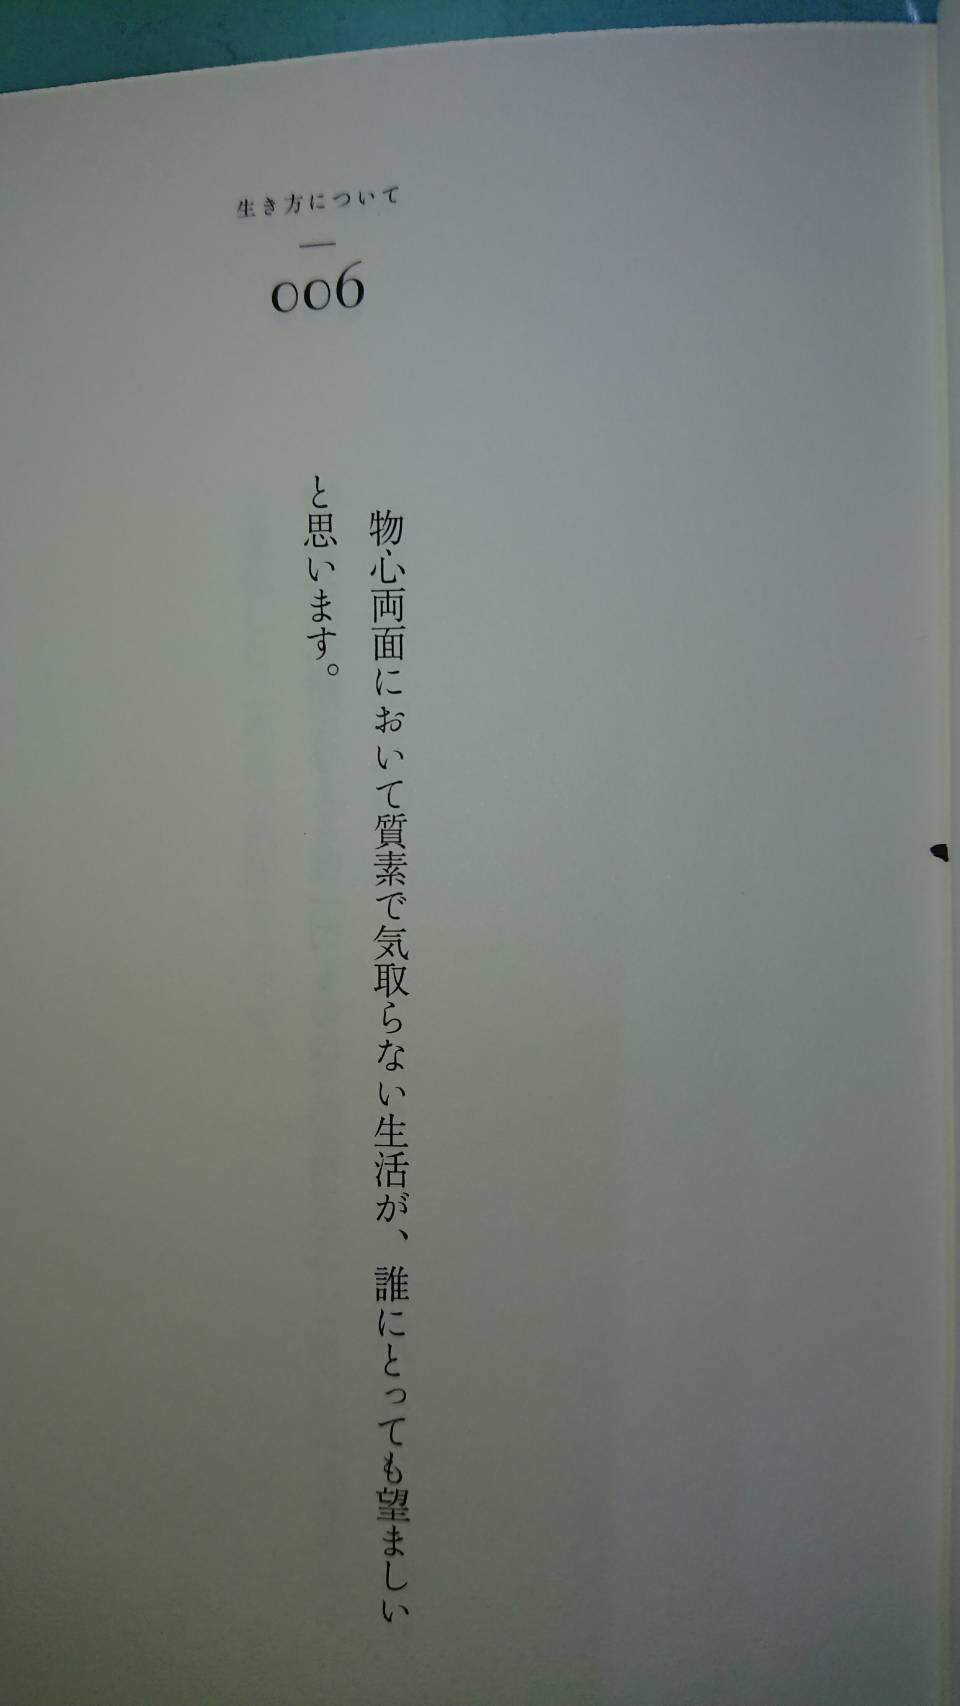 生き方について
006
物心両面において質素で気取らない生活が、誰にとっても望ましい
と思います。